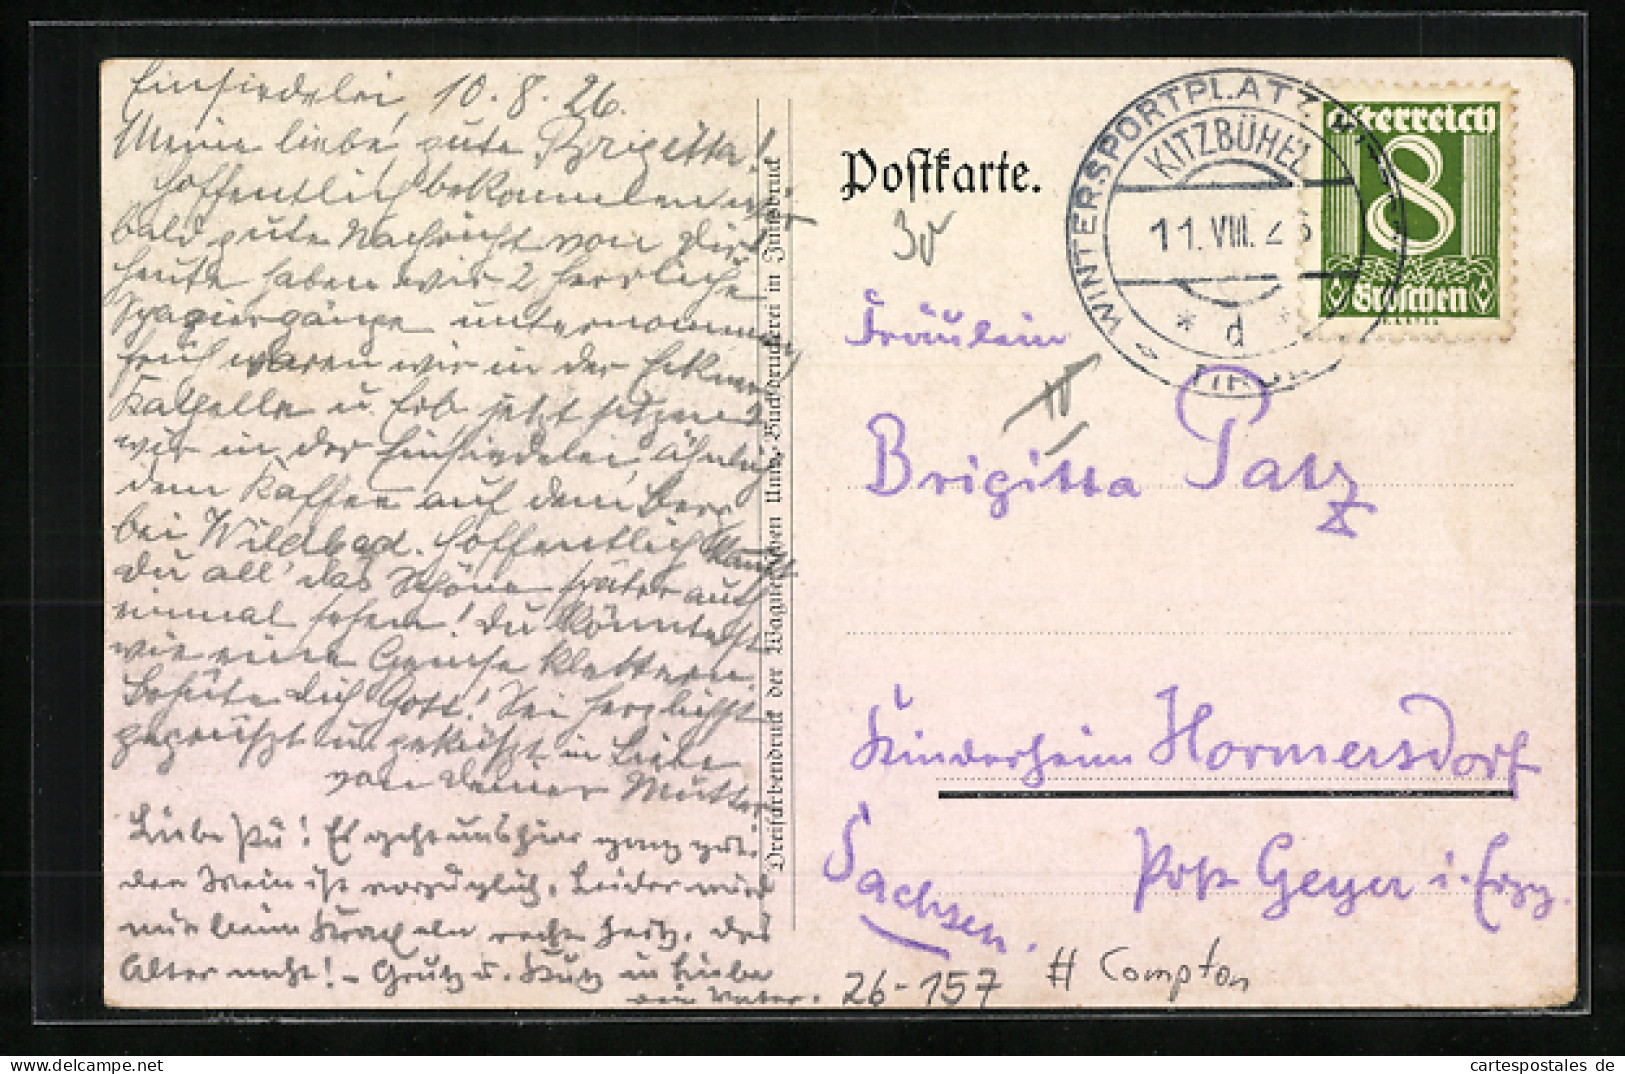 Einsiedelei, 10. 8. 26.
Meine liebe, gute Brigitta!
Hoffentlich bekommen wir
bald gute Nachricht von Dir!
heute haben wir 2 herrliche
Spaziergänge unternommen
früh waren wir in der
Kapelle u. jetzt sitzen
wir in der Einsiedelei, ähnlich
dem Kaffee auf dem Berg
bei Wildbad. Hoffentlich kannst
Du all' das Schöne später auch
einmal sehen! Du könntest
wie eine Gemse klettern.
Behüte Dich Gott! Sei herzlichst
gegrüßt u. geküßt in Liebe
von Deiner Mutter
Liebe Pü! Es geht uns hier ganz gut,
der Wein ist vorzüglich. Leider wird
nur beim Kraxeln recht
Alter macht! – u. in Liebe
Dein Vater.
Dreifarbendruck der Wagner'schen Univ.-Buchdruckerei in Innsbruck
Postkarte.
WINTERSPORTPLATZ
KITZBÜHEL
11. VIII. 26
* d *
TIROL
Österreich
8
Groschen
30
Fräulein
Brigitta Patz
Kinderheim Hormersdorf
Post Geyer i. Erzg.
Sachsen.
26-157 # Compton
cartespostales de